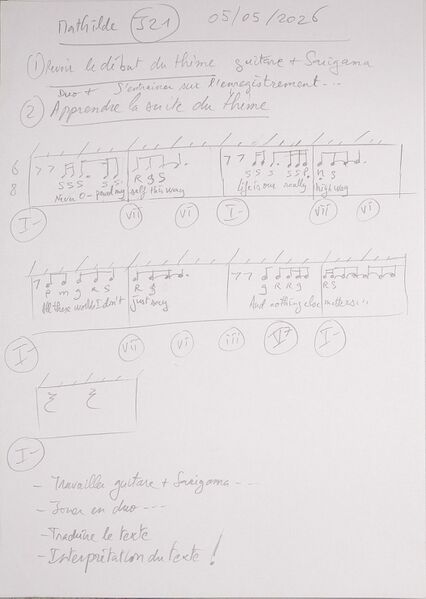 Mathilde J21 05/05/2026
① Revoir le début du thème guitare + Sarigama
Duo + S'entraîner sur l'enregistrement...
② Apprendre la suite du thème
6
8
7 7 7 7
S S S S S R g S S S S S S P. n S
Never o-pened my self this way life is our really high way
I- vii vi I- vii vi
7 7 7
P m g R S R g g R R g R S
All these words I don't just say And nothing else matters...
I- vii vi iii V7 I-
I-
- Travailler guitare + Sarigama - -
- Jouer en duo - - -
- Traduire le texte
- Interprétation du texte !